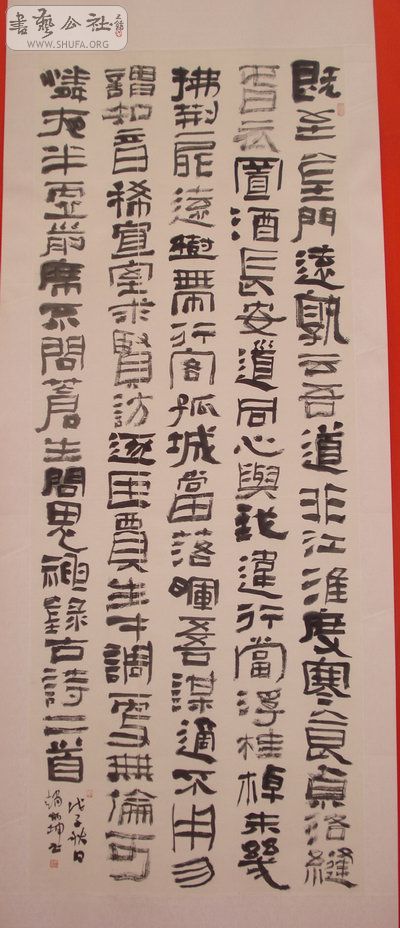 書藝公社
WWW.SHUFA.ORG
既至金門遠孰云吾道非江淮度寒食京洛縫
置酒長安道同心與我違行當浮桂棹未幾
拂荆扉遠樹帶行客孤城當落暉吾謀適不用勿
謂知音稀宣室求賢訪逐臣賈生才調更無倫可
憐夜半虛前席不問蒼生問鬼神錄古詩二首
戊子秋日